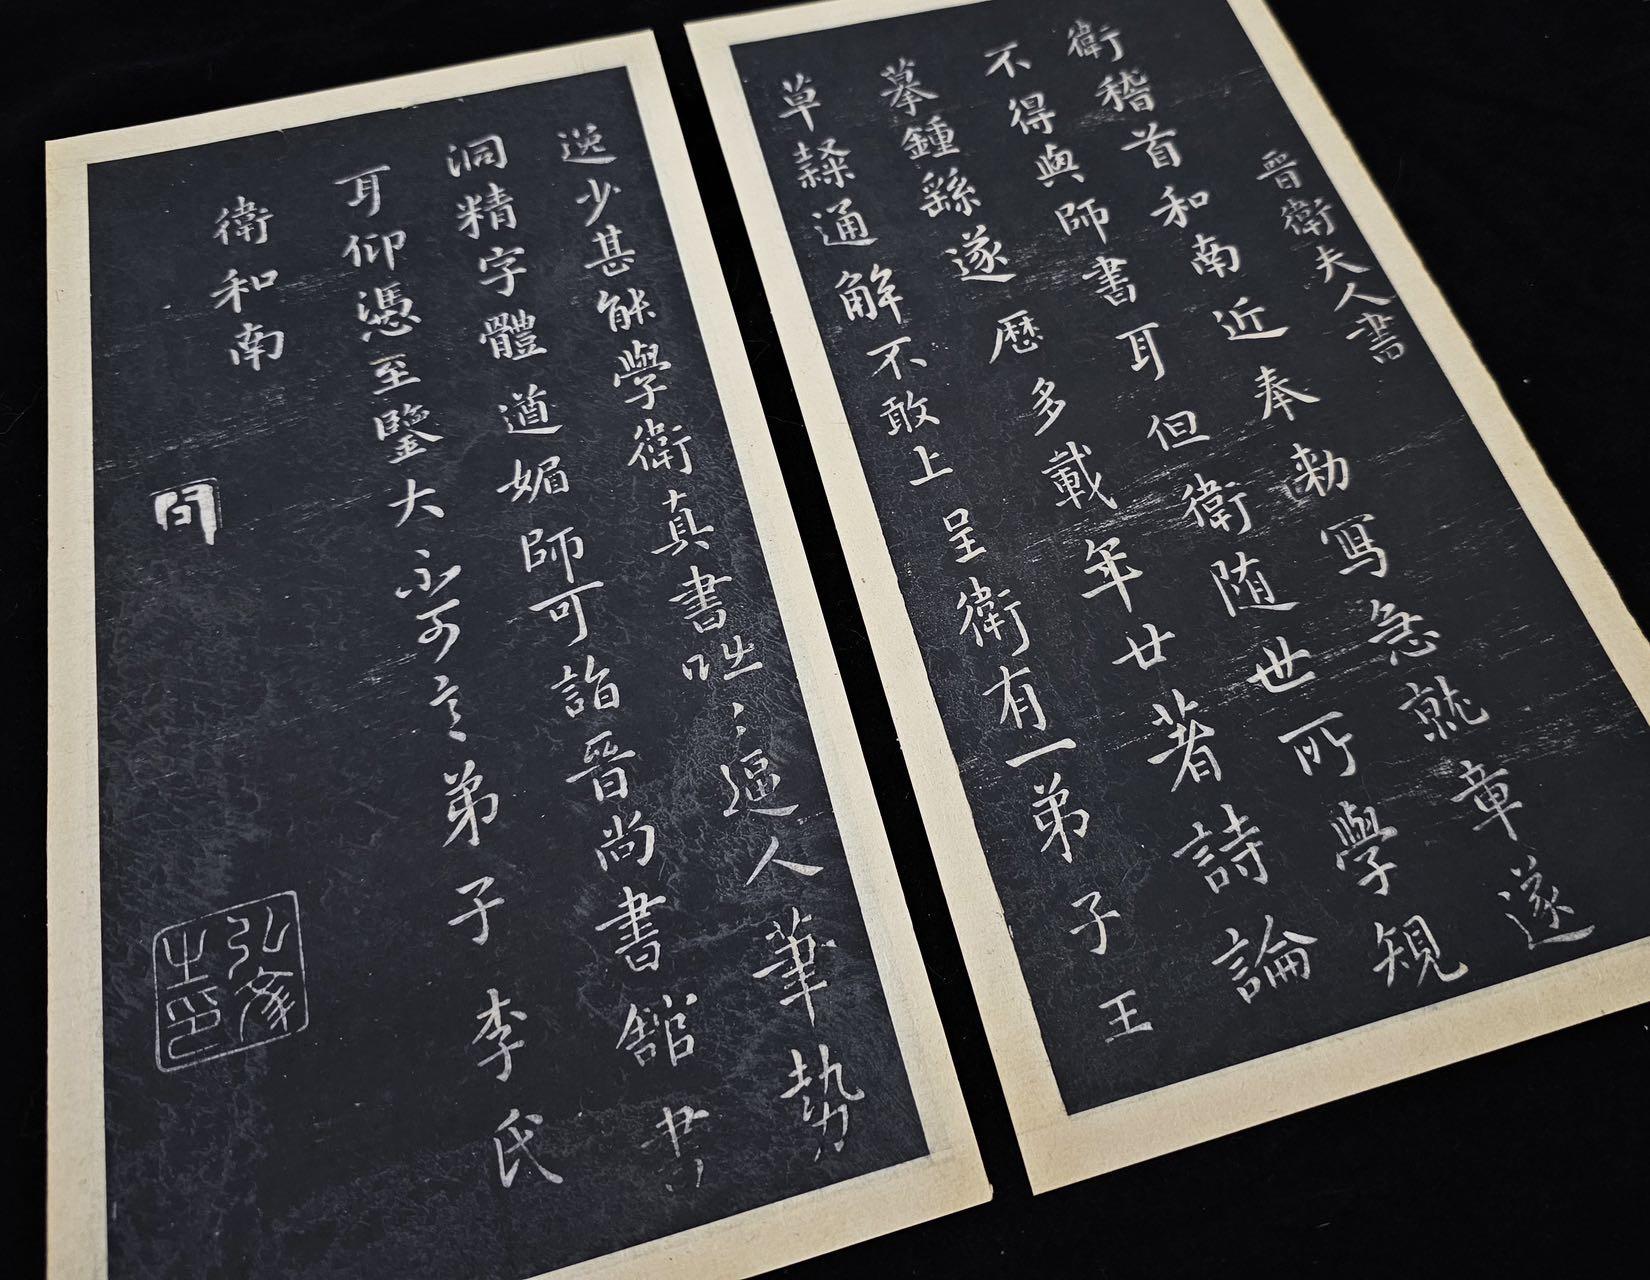 晋衛夫人書
衛稽首和南近奉勅寫急就章遂
不得與師書耳但衛随世所學規
摹鍾繇遂歷多載年廿著詩論
草隸通解不敢上呈衛有一弟子王
逸少甚能學衛真書咄〻逼人筆勢
洞精字體遒媚師可詣晉尚書館書
耳仰憑至鑒大不可言弟子李氏
衛和南